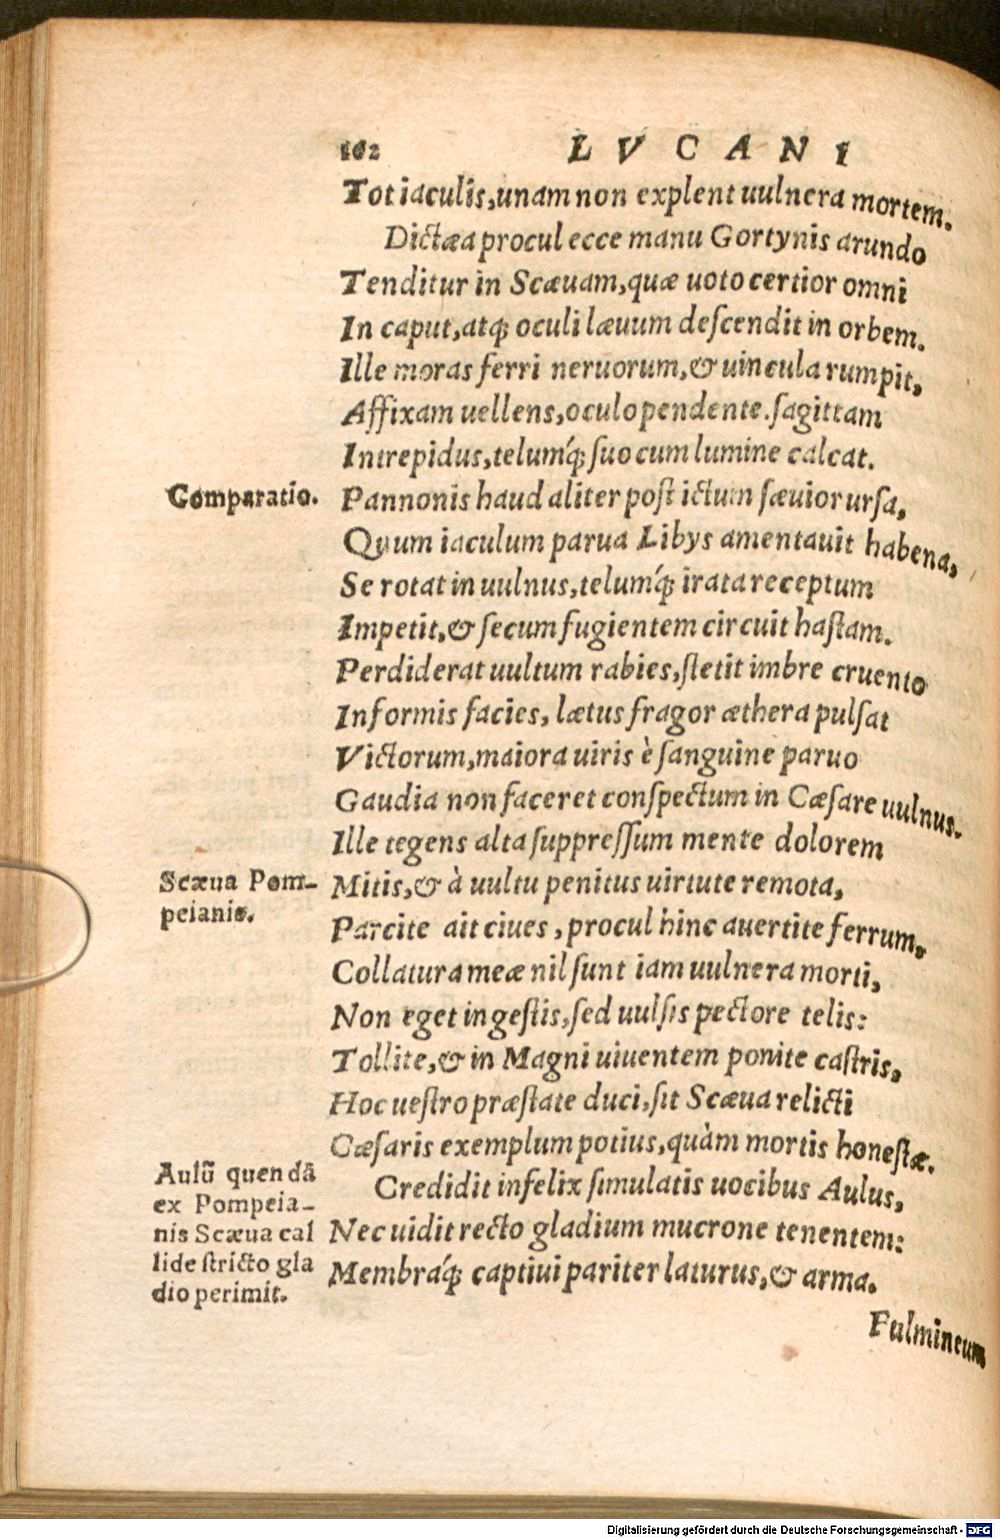 162 LVCANI
Tot iaculis, unam non explent uulnera mortem.
Dictæa procul ecce manu Gortynis arundo
Tenditur in Scæuam, quæ uoto certior omni
In caput, atq; oculi læuum descendit in orbem.
Ille moras ferri neruorum, & uincula rumpit,
Affixam uellens, oculo pendente. sagittam
Intrepidus, telumq́; suo cum lumine calcat.
Comparatio.
Pannonis haud aliter post ictum sæuior ursa,
Quum iaculum parua Libys amentauit habena,
Se rotat in uulnus, telumq́; irata receptum
Impetit, & secum fugientem circuit hastam.
Perdiderat uultum rabies, stetit imbre cruento
Informis facies, lætus fragor æthera pulsat
Victorum, maiora uiris è sanguine paruo
Gaudia non faceret conspectum in Cæsare uulnus.
Ille tegens alta suppressum mente dolorem
Scæua Pom-
peianis.
Mitis, & à uultu penitus uirtute remota,
Parcite ait ciues, procul hinc auertite ferrum,
Collatura meæ nil sunt iam uulnera morti,
Non eget ingestis, sed uulsis pectore telis:
Tollite, & in Magni uiuentem ponite castris,
Hoc uestro præstate duci, sit Scæua relicti
Cæsaris exemplum potius, quàm mortis honestæ.
Aulũ quendã
ex Pompeia-
nis Scæua cal
lide stricto gla
dio perimit.
Credidit infelix simulatis uocibus Aulus,
Nec uidit recto gladium mucrone tenentem:
Membraq́; captiui pariter laturus, & arma.
Fulmineum
Digitalisierung gefördert durch die Deutsche Forschungsgemeinschaft - DFG